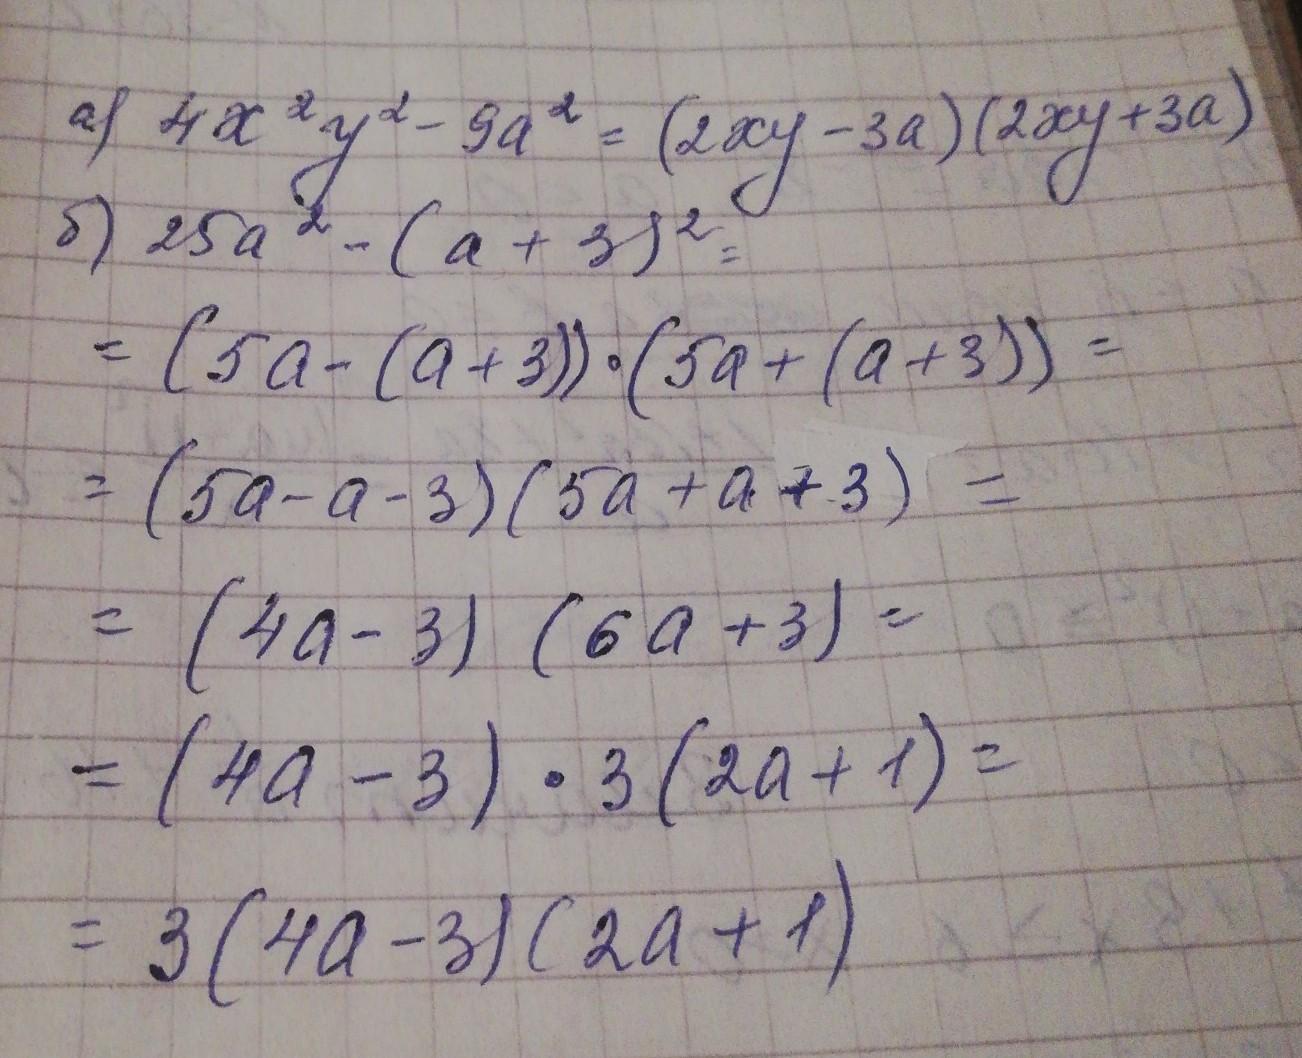 а) 4x²y² - 9a² = (2xy - 3a)(2xy + 3a)
б) 25a² - (a + 3)² =
= (5a - (a + 3)) · (5a + (a + 3)) =
= (5a - a - 3)(5a + a + 3) =
= (4a - 3) (6a + 3) =
= (4a - 3) · 3 (2a + 1) =
= 3 (4a - 3)(2a + 1)